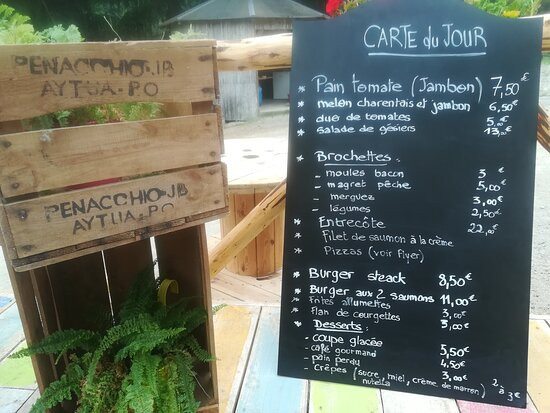 PENACCHIO·JB
AYTUA·PO
PENACCHIO·JB
AYTUA·PO
CARTE du JOUR
* Pain tomate (Jambon) 7,50€
* melon charentais et jambon 6,50€
* duo de tomates 5,00€
* salade de gésiers 13,00€
* Brochettes :
- moules bacon 3€
- magret pêche 5,00€
- merguez 3,00€
- légumes 2,50€
* Entrecôte 22,00€
* Filet de saumon à la crème
* Pizzas (voir flyer)
* Burger steack 8,50€
* Burger aux 2 saumons 11,00€
* Frites allumettes 3,00€
* Flan de courgettes 3,00€
* Desserts :
- coupe glacée
- café gourmand 5,50€
- pain perdu 4,50€
- crêpes (sucre, miel, crème de marron) 3,00€
nutella 2 à 3€